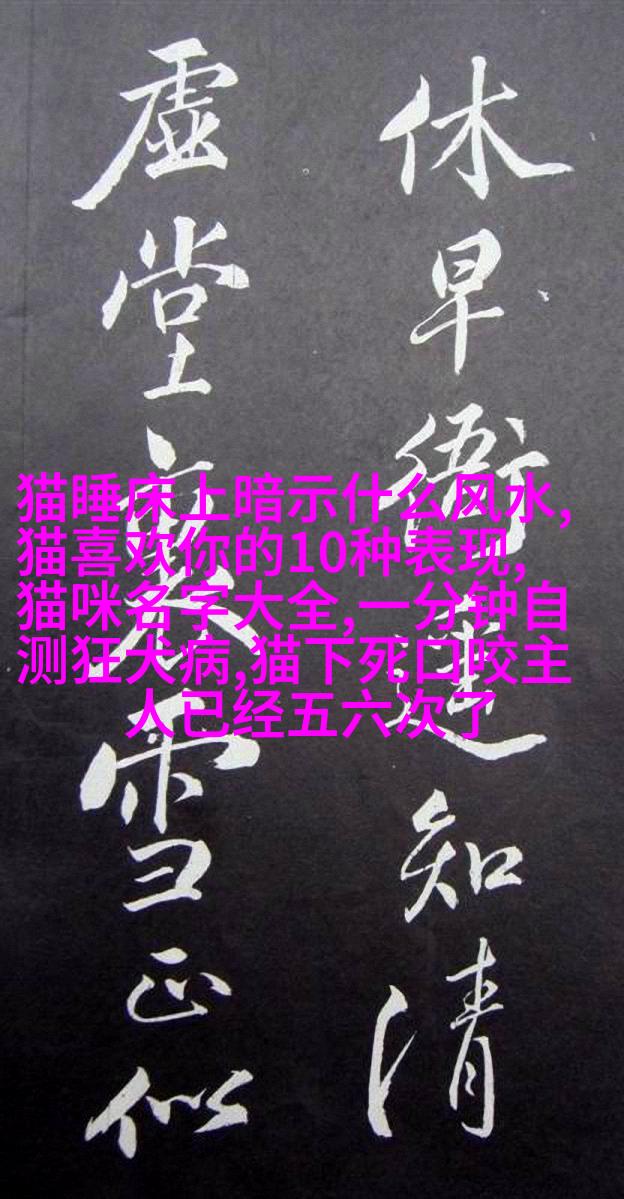 休早衙遣知清
虚堂夜雪正似
猫睡床上暗示什么风水,
猫喜欢你的10种表现,
猫咪名字大全,一分钟自
测狂犬病,猫下死口咬主
人已经五六次了